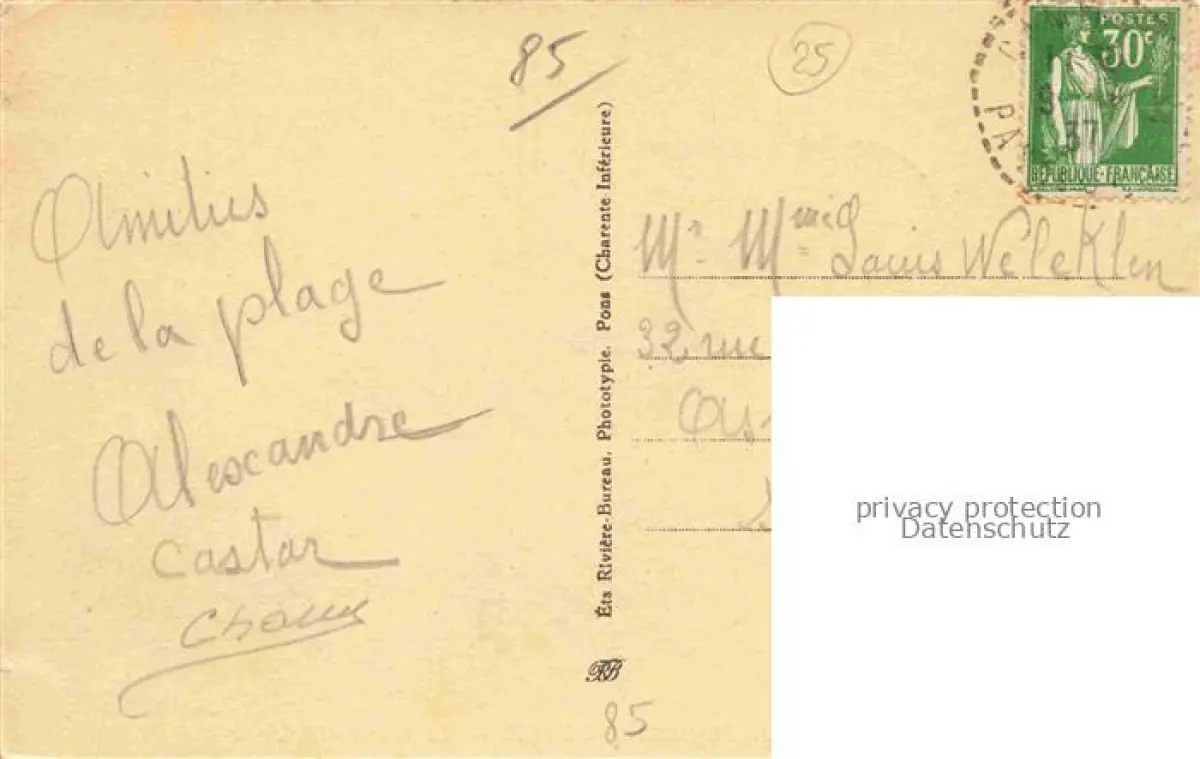 85
25
POSTES
30c
37
PA
RÉPUBLIQUE-FRANÇAISE
Amitiés
de la plage
Alexandre
Castar
Éts Rivière-Bureau, Phototypie, Pons (Charente Inférieure)
RB
85
Mr Mme Louis
32, rue
privacy protection
Datenschutz